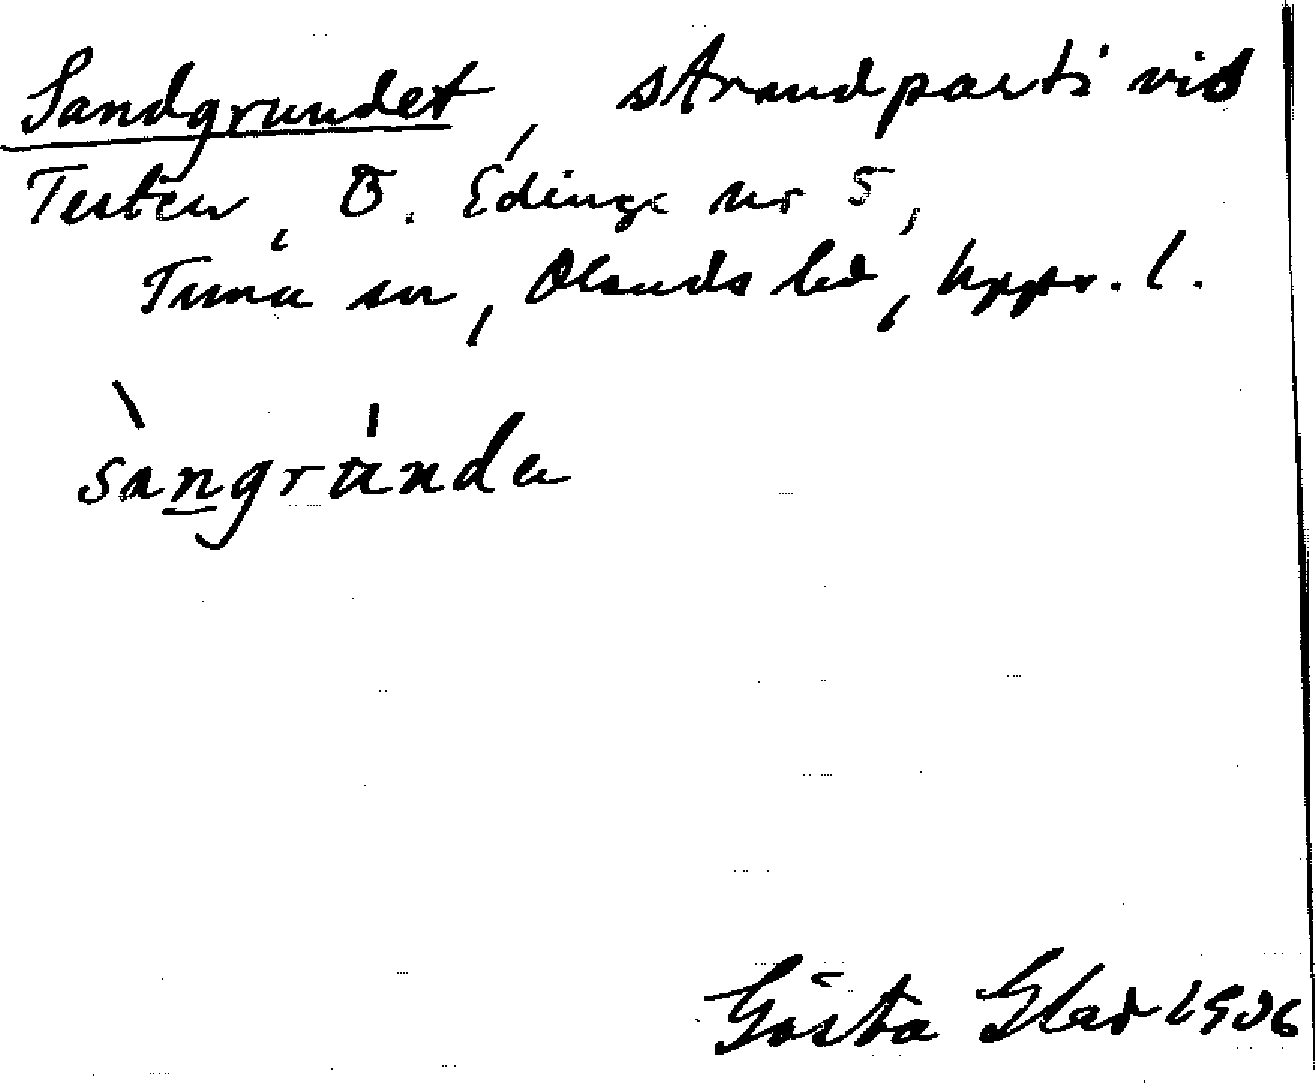 Sandgrundet, strandparti vid
Testen, Ö. Edinge nr 5,
Tuna sn, Olands hd, Upps. l.
sàngrúnda
Gösta Glad 1936